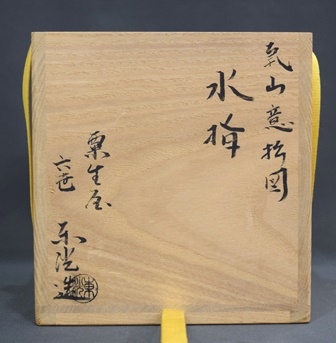 乾山意松図
水指
粟生屋
六世
東 造
東